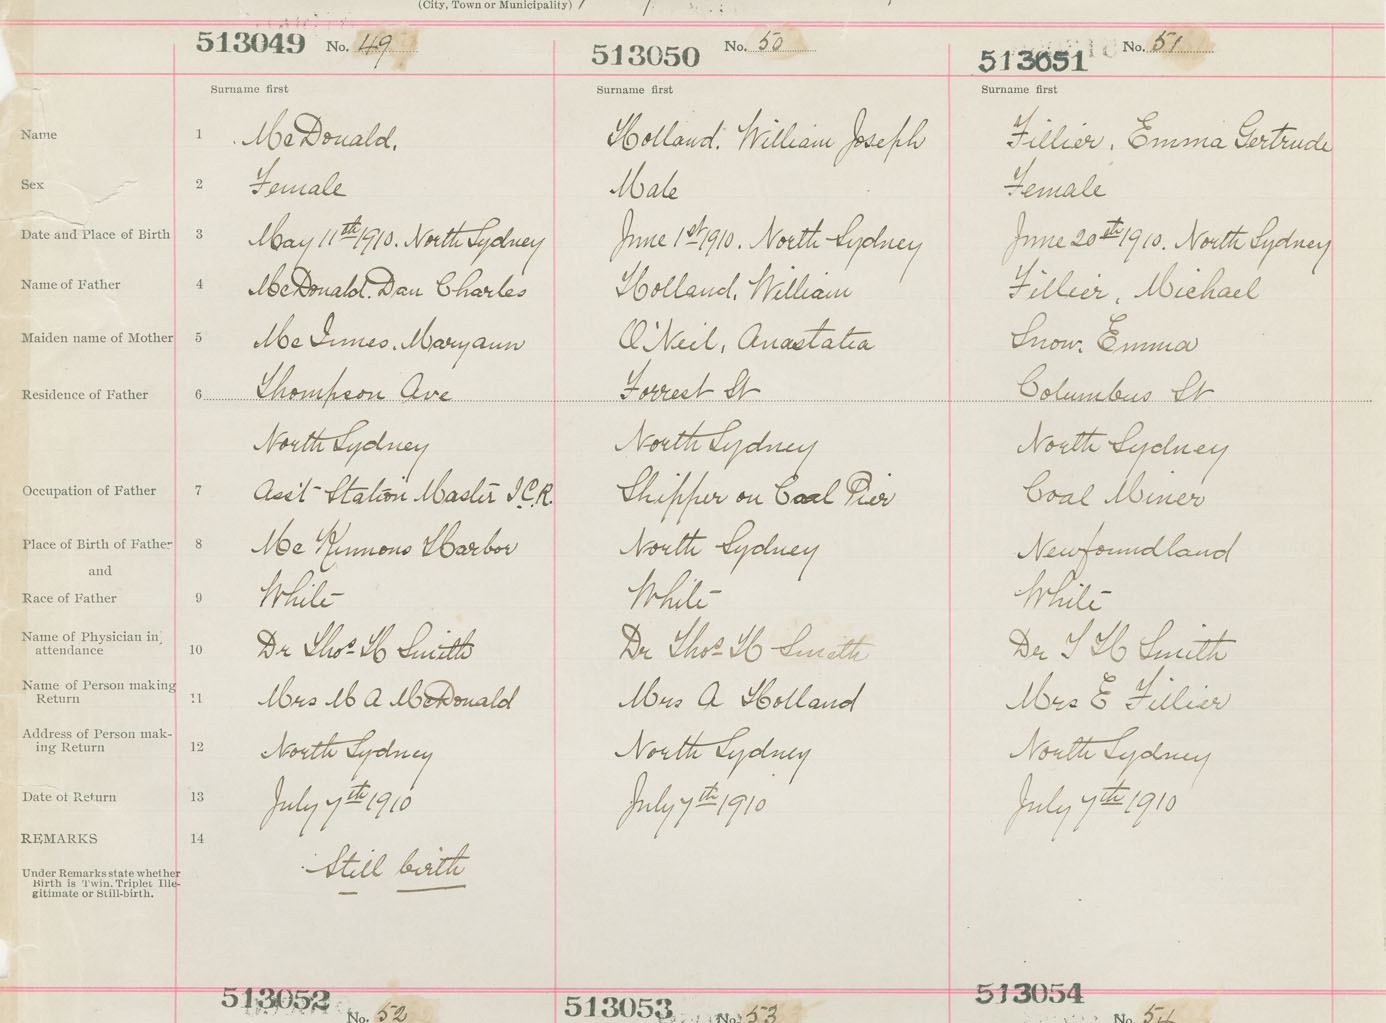 (City, Town or Municipality)
513049 No. 49
513050 No. 50
513051 No. 51
Surname first Surname first Surname first
Name 1 McDonald. Holland. William Joseph Fillier, Emma Gertrude
Sex 2 Female Male Female
Date and Place of Birth 3 May 11th 1910. North Sydney June 1st 1910. North Sydney June 20th 1910. North Sydney
Name of Father 4 McDonald. Dan Charles Holland. William Fillier, Michael
Maiden name of Mother 5 McInnes. Maryann O'Neil, Anastatia Snow. Emma
Residence of Father 6 Thompson Ave Forrest St Columbus St
North Sydney North Sydney North Sydney
Occupation of Father 7 Ass't Station Master I.C.R. Shipper on Coal Pier Coal Miner
Place of Birth of Father 8 McKinnons Harbor North Sydney Newfoundland
and
Race of Father 9 White White White
Name of Physician in attendance 10 Dr Thos H Smith Dr Thos H Smith Dr T H Smith
Name of Person making Return 11 Mrs M A McDonald Mrs A Holland Mrs E Fillier
Address of Person mak-
ing Return 12 North Sydney North Sydney North Sydney
Date of Return 13 July 7th 1910 July 7th 1910 July 7th 1910
REMARKS 14
Still birth
Under Remarks state whether
Birth is Twin, Triplet Ille-
gitimate or Still-birth.
513052 No. 52
513053 No. 53
513054 No. 54